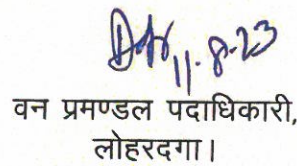 11.8.23
वन प्रमण्डल पदाधिकारी,
लोहरदगा।